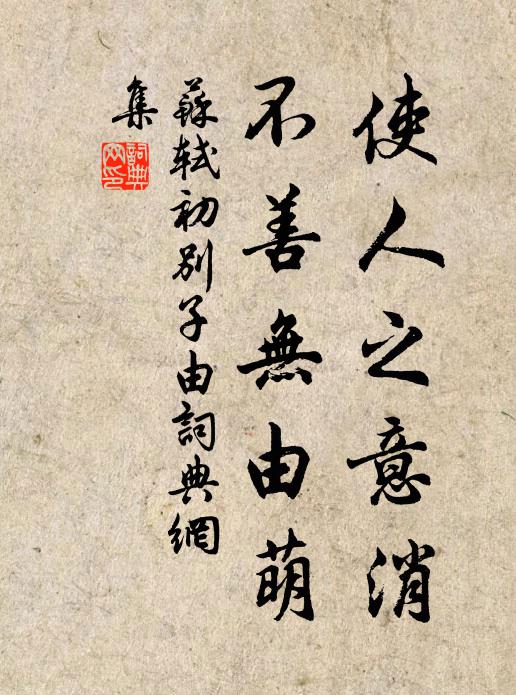 使人之意消
不善無由萌
蘇軾初別子由詞典網
集
詞典
网印